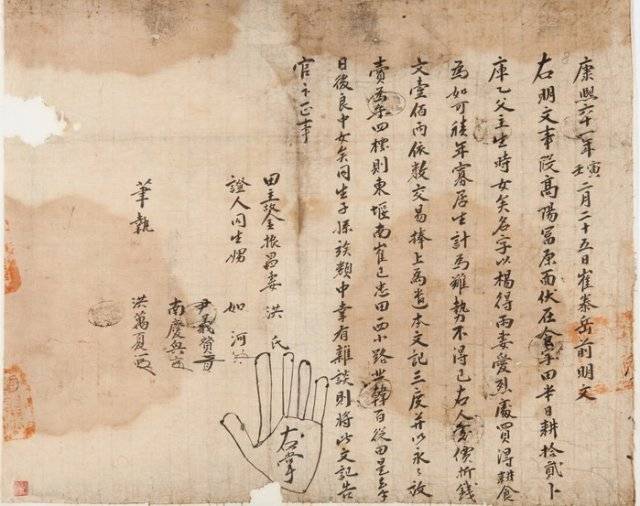 康熙六十一年壬寅二月二十五日崔泰岳前明文
右明文事段高陽冨原面伏在食字田半日耕拾貳卜
庫乙父主生時女矣名字以楊得雨妻愛烈處買得耕食
為如可積年寡居生計為難勢不得已右人處價折錢
文壹佰両依数交易捧上為遣本文記三度并以永〻放
賣為乎四標則東堰南崔已忠田西小路北韓百從田是乎
日後良中女矣同生子孫族類中幸有雜談則將此文記告
官卞正事
田主故金振昌妻 洪氏
右掌
證人同生甥 如河
尹義賛
南慶興
筆執 洪萬夏